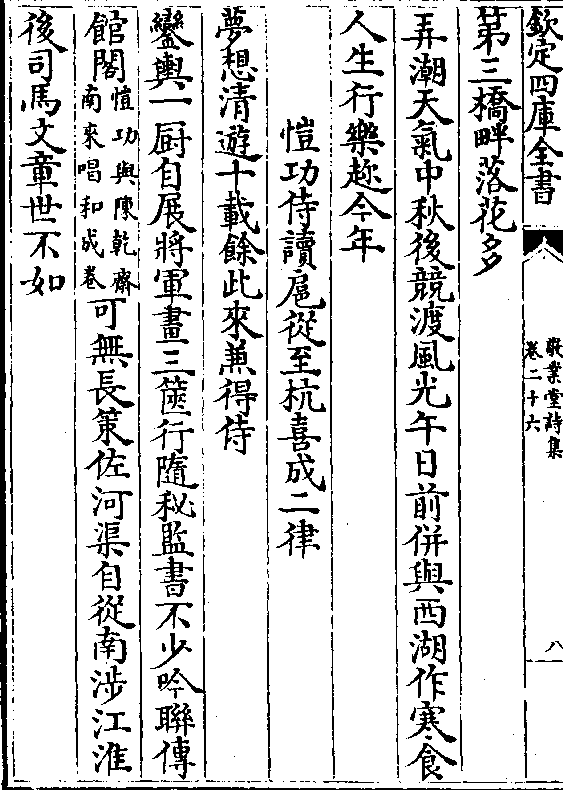 欽定四庫全書
敬業堂詩集
卷二十六
八
第三橋畔落花多
弄潮天氣中秋後競渡風光午日前併與西湖作寒食
人生行樂趂今年
愷功侍讀扈從至杭喜成二律
夢想清遊十載餘此來兼得侍
鑾輿一厨自展將軍畫三篋行隨秘監書不少吟聯傳
館閣愷功與陳乾齋南來唱和成卷可無長策佐河渠自從南涉江淮
後司馬文章世不如